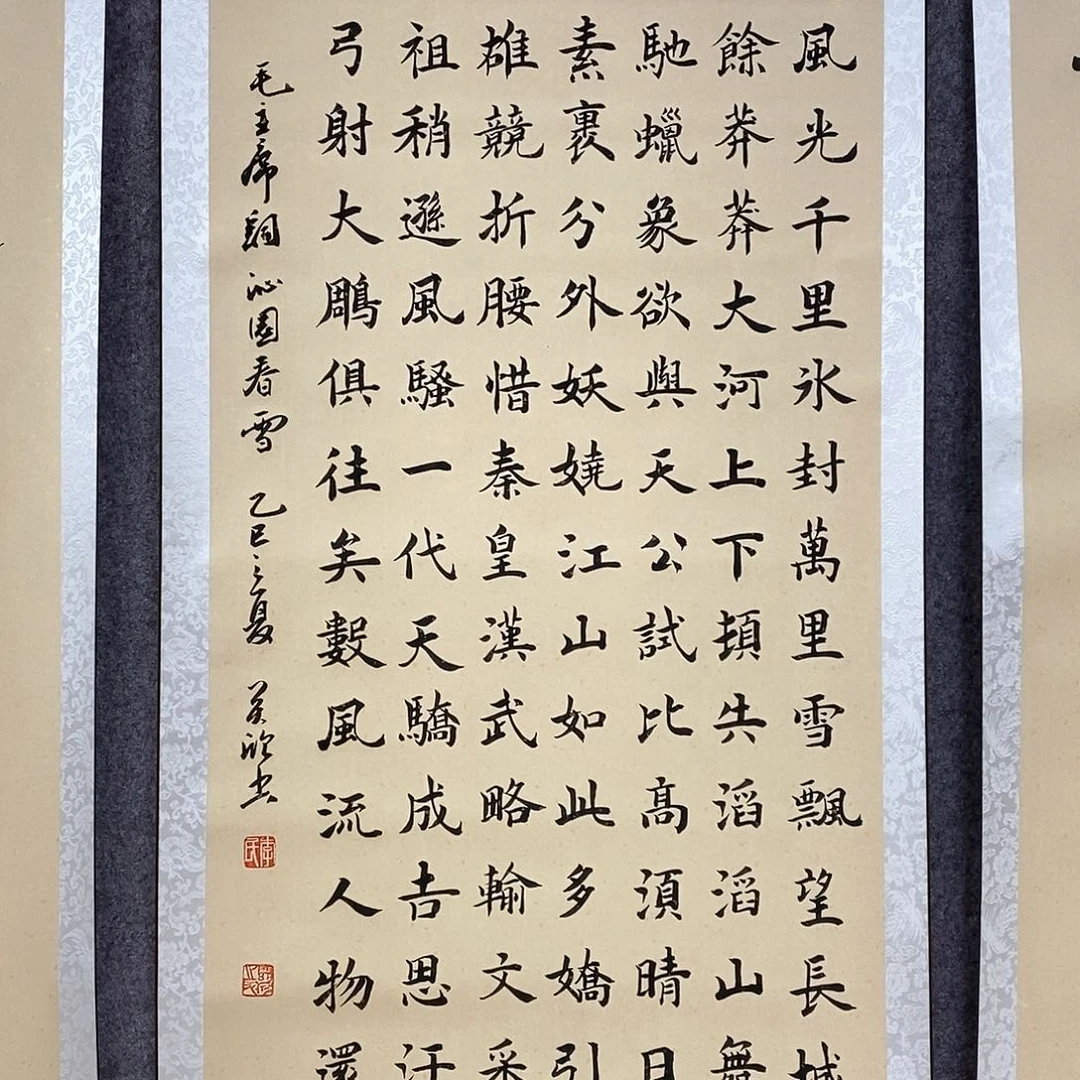 風光千里氷封萬里雪飄望長城
餘莽莽大河上下頓失滔滔山舞
馳蠟象欲與天公試比高湏晴日
素裹分外妖嬈江山如此多嬌引
雄競折腰惜秦皇漢武略輸文采
祖稍遜風騷一代天驕成吉思汗
弓射大鵰俱往矣數風流人物還
毛主席詞沁園春雪 乙巳之夏 英欣書